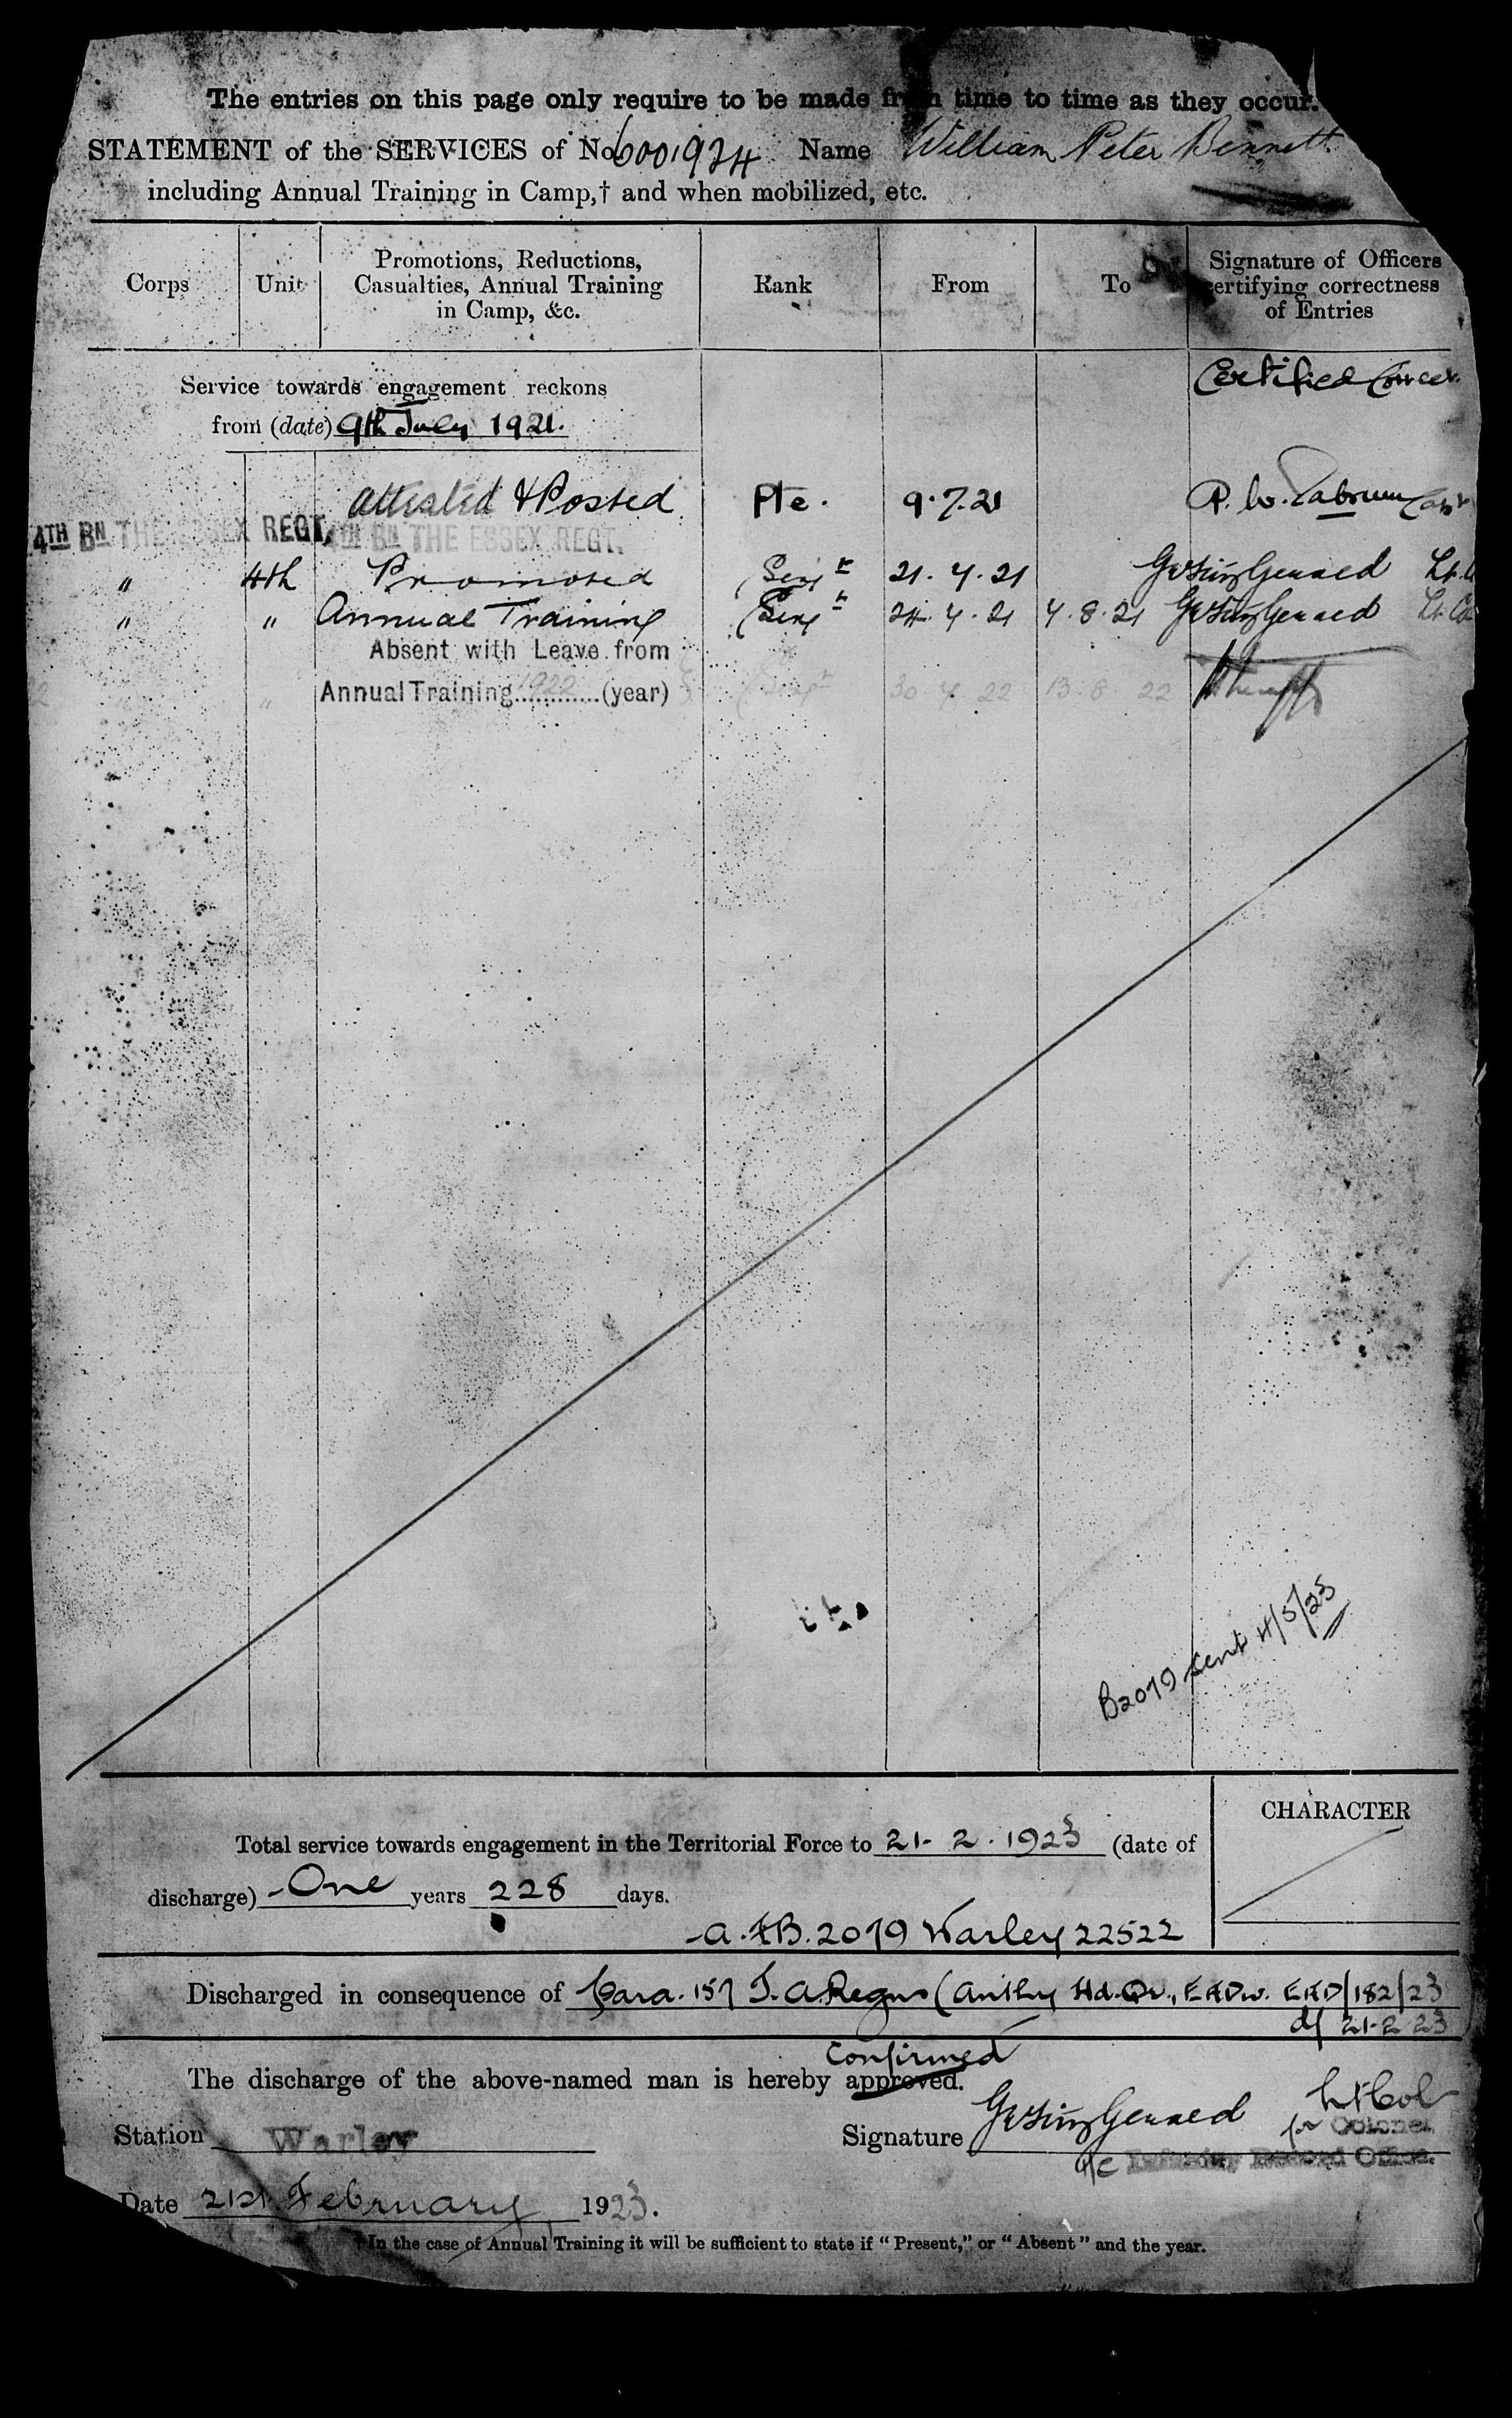 The entries on this page only require to be made from time to time as they occur.
STATEMENT of the SERVICES of No 6001924 Name William Peter Bennett
including Annual Training in Camp,† and when mobilized, etc.
Corps Unit Promotions, Reductions, Casualties, Annual Training in Camp, &c. Rank From To Signature of Officers certifying correctness of Entries
Certified Correct
Service towards engagement reckons
from (date) 9th July 1921.
attested & Posted Pte. 9.7.21 R. W. Capt
4TH BN THE ESSEX REGT. 4TH BN THE ESSEX REGT.
" 4th Promoted Serjt 21.7.21 Lt. Col
" " Annual Training Serjt 24.7.21 7.8.21 Lt. Col
Absent with Leave from
" Annual Training 1922 (year) Serjt 30 7 22 13 8 22
B2079 sent 4/5/23
CHARACTER
Total service towards engagement in the Territorial Force to 21-2.1923 (date of
discharge) One years 228 days.
A.F.B.2079 Warley 22522
Discharged in consequence of para. 157 T.A. Regns (Authy Hd.Qr., E&Dw. EAD/182/23
d/ 21-2-23
Confirmed
The discharge of the above-named man is hereby approved.
Station Warley Signature Lt Col
for Colonel
i/c Infantry Record Office.
Date 21st February 1923.
†In the case of Annual Training it will be sufficient to state if "Present," or "Absent" and the year.